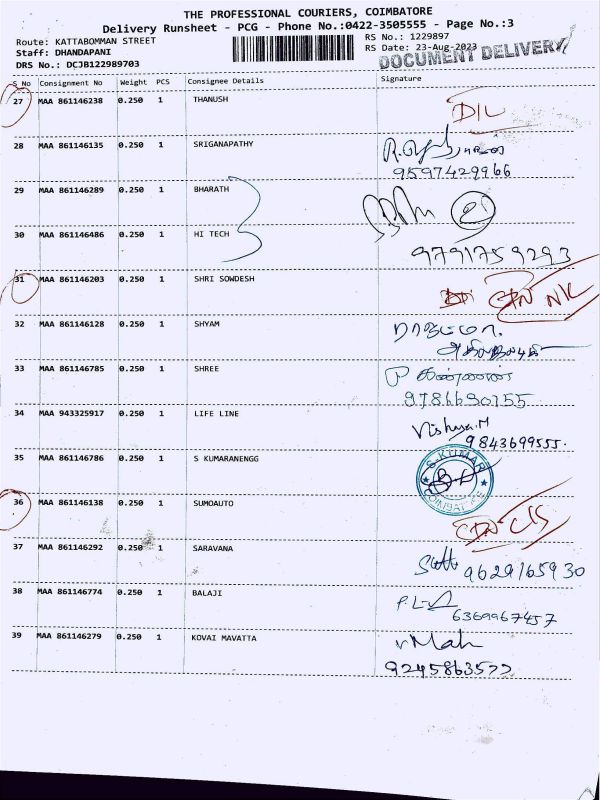 THE PROFESSIONAL COURIERS, COIMBATORE
Delivery Runsheet - PCG - Phone No.:0422-3505555 - Page No.:3
Route: KATTABOMMAN STREET
Staff: DHANDAPANI
DRS No.: DCJB122989703
RS No.: 1229897
RS Date: 23-Aug-2023
DOCUMENT DELIVERY
S No Consignment No Weight PCS Consignee Details Signature
27 MAA 861146238 0.250 1 THANUSH
28 MAA 861146135 0.250 1 SRIGANAPATHY
9597429966
29 MAA 861146289 0.250 1 BHARATH
30 MAA 861146486 0.250 1 HI TECH
9791759293
31 MAA 861146203 0.250 1 SHRI SOWDESH
32 MAA 861146128 0.250 1 SHYAM
33 MAA 861146785 0.250 1 SHREE
9786690755
34 MAA 943325917 0.250 1 LIFE LINE
9843699555.
35 MAA 861146786 0.250 1 S KUMARANENGG
36 MAA 861146138 0.250 1 SUMOAUTO
37 MAA 861146292 0.250 1 SARAVANA
9629165930
38 MAA 861146774 0.250 1 BALAJI
6369967457
39 MAA 861146279 0.250 1 KOVAI MAVATTA